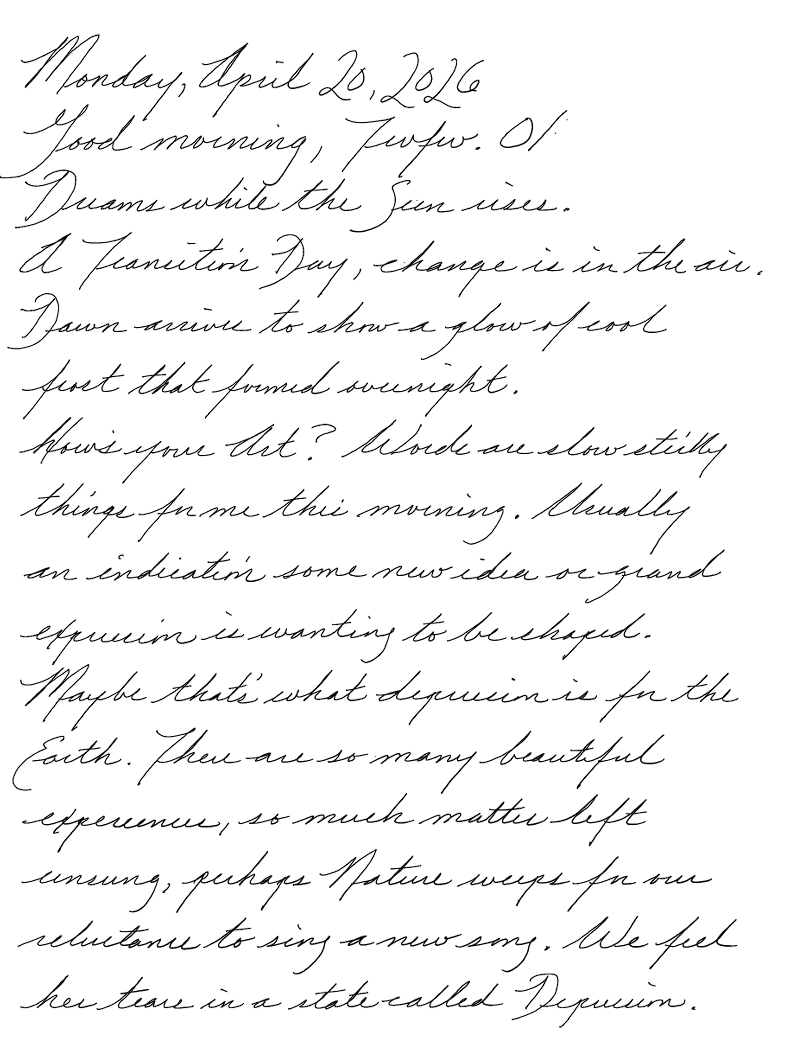 Monday, April 20, 2026
Good morning, Twfw. 01
Dreams while the Sun rises.
A Transition Day, change is in the air.
Dawn arrives to show a glow of cool
frost that formed overnight.
How's your Art? Words are slow steily
things for me this morning. Usually
an indication some new idea or grand
expression is wanting to be shaped.
Maybe that's what depression is for the
Earth. There are so many beautiful
experiences, so much matter left
unsung, perhaps Nature weeps for our
reluctance to sing a new song. We feel
her tears in a state called Depression.